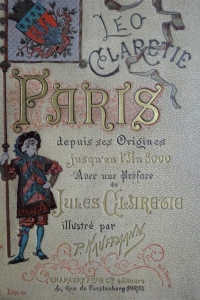 LEO
CLARETIE
PARIS
depuis ses Origines
jusqu'en l'An 3000
Avec une Préface
de
JULES CLARETIE
illustré par
P. KAUFFMANN
CHARAVAY Frs & Cie éditeurs
4, Rue de Furstenberg (PARIS)